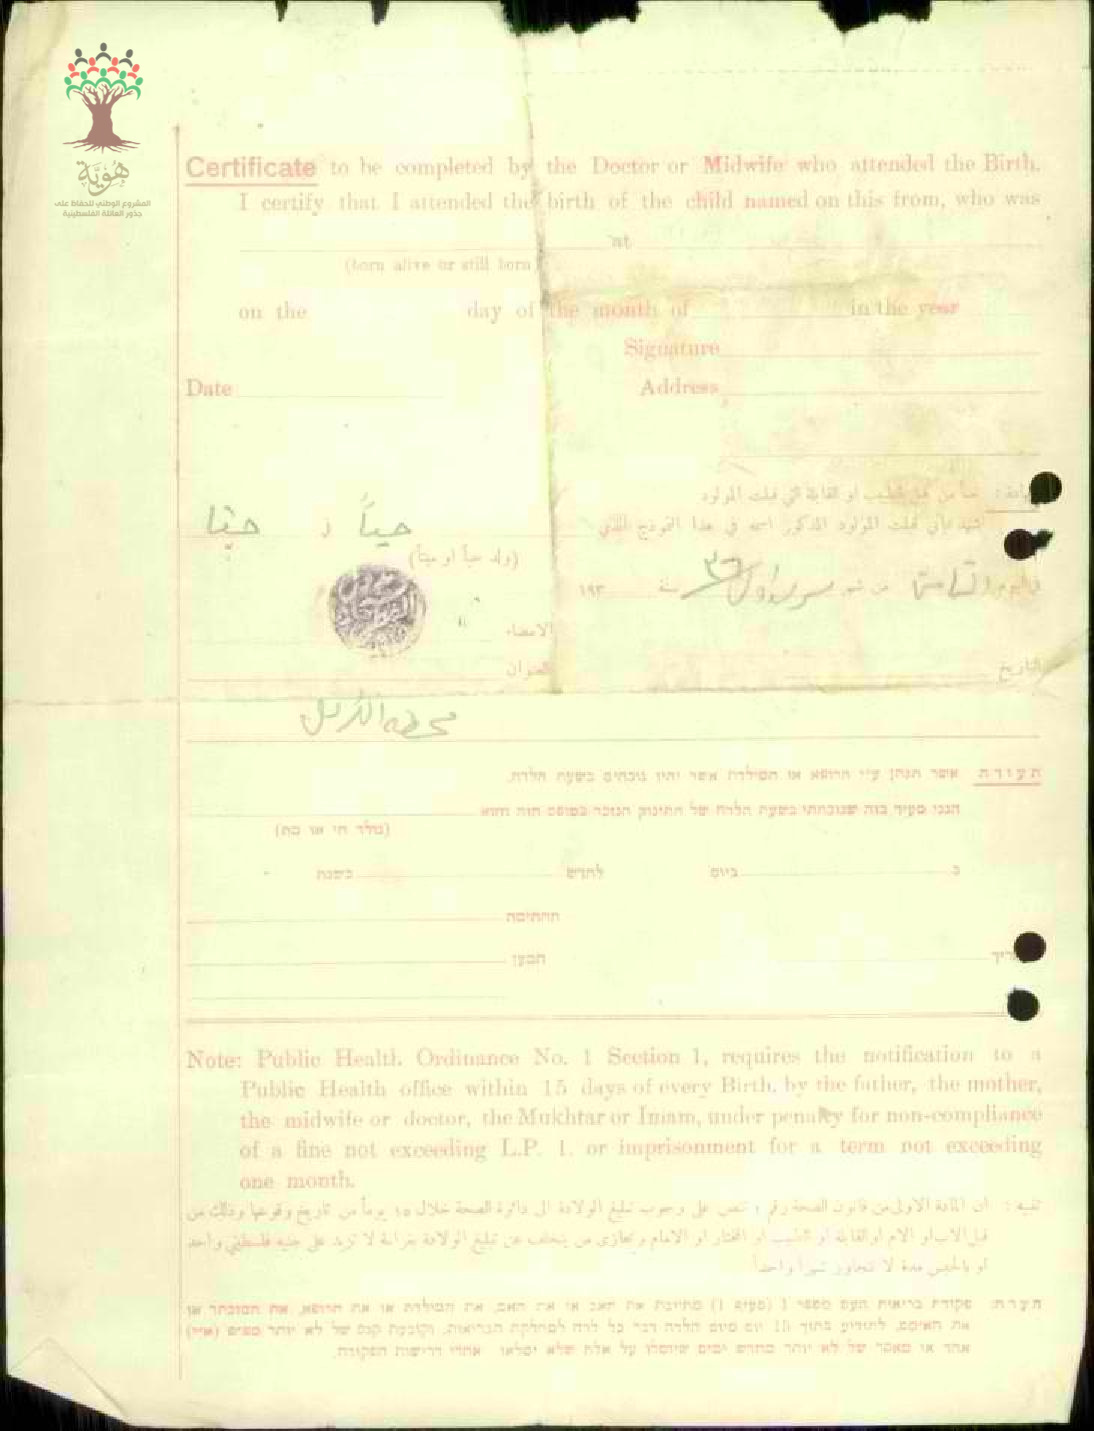 هُويَّة
المشروع الوطني للحفاظ على
جذور العائلة الفلسطينية
Certificate to be completed by the Doctor or Midwife who attended the Birth.
I certify that I attended the birth of the child named on this from, who was
at
(born alive or still born)
on the day of the month of in the year
Signature
Date Address
من قبل الطبيب او القابلة التي قبلت المولود
اشهد بأني قبلت المولود المذكور اسمه في هذا النموذج الذي حياً في حيفا
(ولد حياً او ميتاً)
في اليوم الثامن من شهر ٣٦ سنة ١٩٣
الامضاء
التاريخ العنوان
محطة الكرمل
תעודה אשר תנתן ע״י הרופא או המילדת אשר יהיו נוכחים בשעת הלדה.
הנני מעיד בזה שנוכחתי בשעת הלדה של התינוק הנזכר בטופס הזה והוא
(נולד חי או מת)
ב ביום לחדש בשנת
החתימה
המען
Note: Public Health Ordinance No. 1 Section 1, requires the notification to a
Public Health office within 15 days of every Birth, by the father, the mother,
the midwife or doctor, the Mukhtar or Imam, under penalty for non-compliance
of a fine not exceeding L.P. 1. or imprisonment for a term not exceeding
one month.
تنبيه : ان المادة الاولى من قانون الصحة رقم ١ تنص على وجوب تبليغ الولادة الى دائرة الصحة خلال ١٥ يوماً من تاريخ وقوعها وذلك من
قبل الاب او الام او القابلة او الطبيب او المختار او الامام ويجازى من يتخلف عن تبليغ الولادة بغرامة لا تزيد على جنيه فلسطيني واحد
او بالحبس مدة لا تتجاوز شهراً واحداً
הערה: פקודת בריאות העם מספר 1 (סעיף 1) מחייבת את האב או את האם, את המילדת או את הרופא, את המוכתר או
את האימם, להודיע בתוך 15 יום מיום הלדה דבר כל לדה למחלקת הבריאות, וקובעת קנס של לא יותר מפונט (א״י)
אחד או מאסר של לא יותר מחדש ימים שיוטלו על אלה שלא ימלאו אחרי דרישות הפקודה.